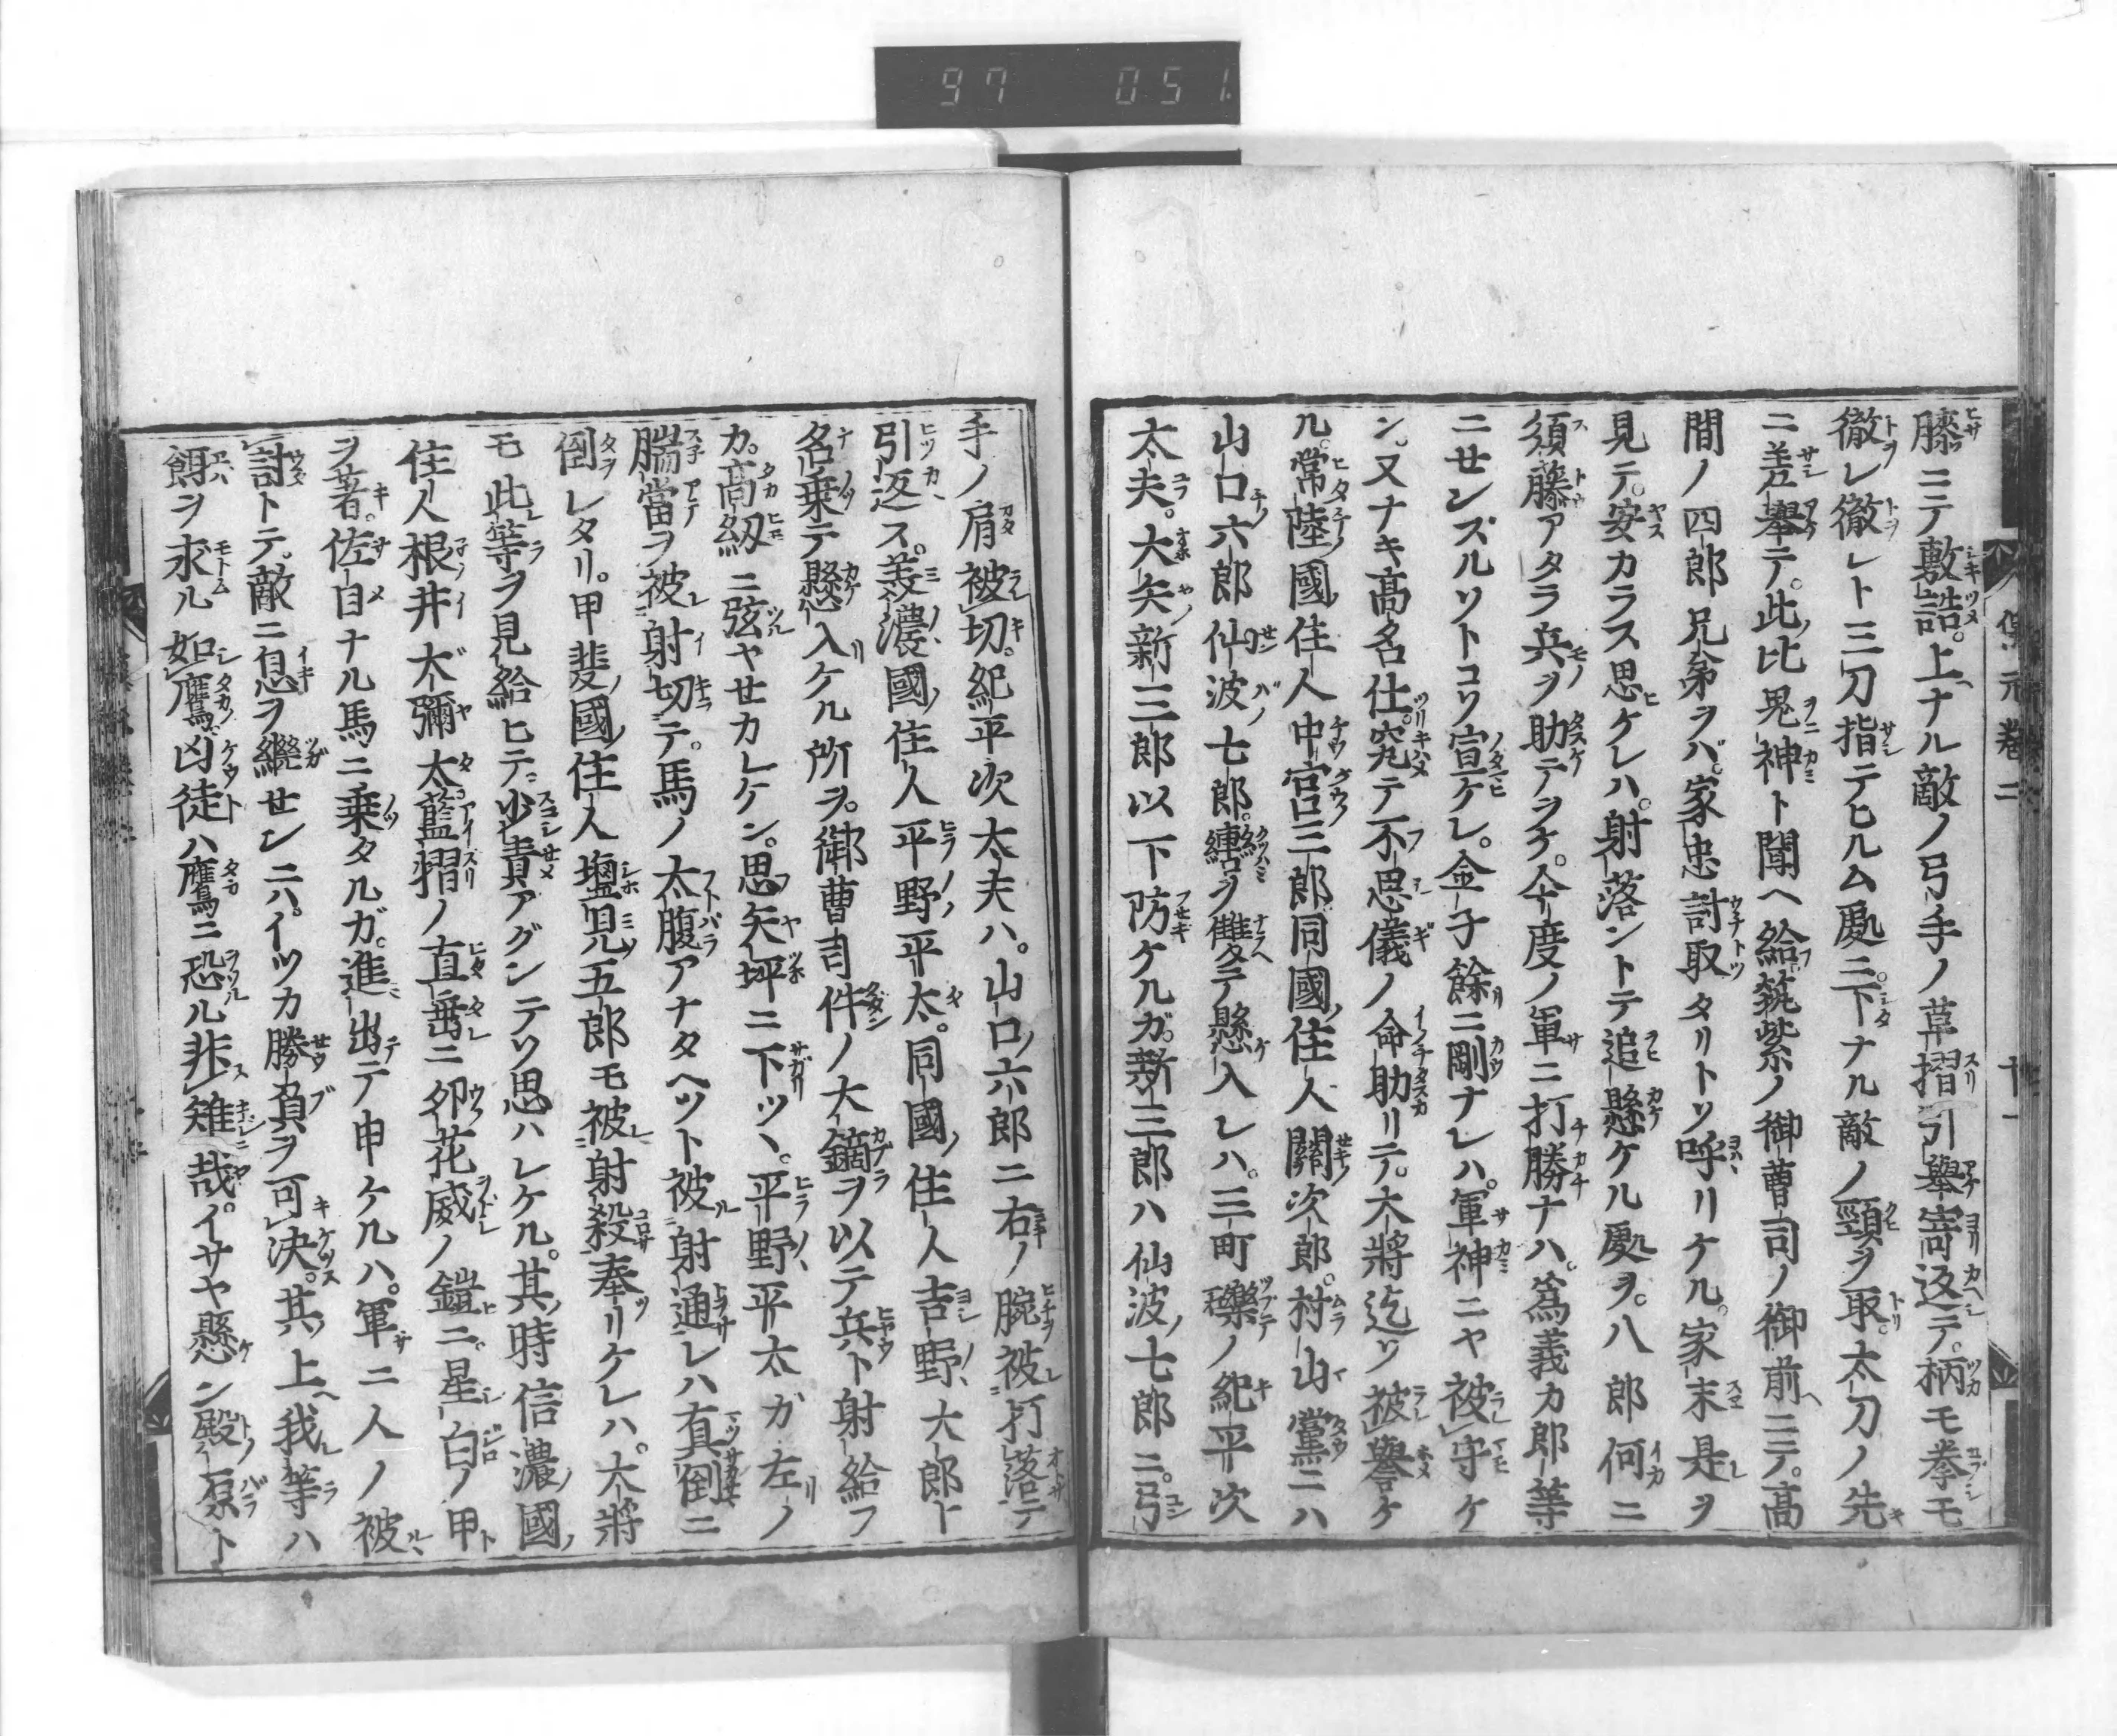 97 051
保元卷二 十一
膝ニテ敷詰。上ナル敵ノ弓手ノ草摺引擧寄返テ。柄モ拳モ
徹レ徹レト三刀指テヒルム處ニ。下ナル敵ノ頸ヲ取。太刀ノ先
ニ差擧テ。此比鬼神ト聞ヘ給筑紫ノ御曹司ノ御前ニテ。高
間ノ四郎兄弟ヲバ。家忠討取タリトソ呼リケル。家末是ヲ
見テ。安カラス思ケレハ。射落ントテ追懸ケル處ヲ。八郎何ニ
須藤アタラ兵ヲ助テヲケ。今度ノ軍ニ打勝ナハ。爲義カ郎等
ニセンズルソトコソ宣ケレ。金子餘ニ剛ナレハ。軍神ニヤ被守ケ
ン。又ナキ高名仕。究テ不思儀ノ命助リテ。大將迄ソ被譽ケ
ル。常陸國住人中宮三郎同國住人關次郎。村山黨ニハ
山口六郎仙波七郎。轡ヲ雙テ懸入レハ。三町礫ノ紀平次
太夫。大矢新三郎以下防ケルガ。新三郎ハ仙波七郎ニ。弓
手ノ肩被切。紀平次太夫ハ。山口六郎ニ右ノ腕被打落テ
引返ス。美濃國住人平野平太。同國住人吉野太郎ト
名乗テ懸入ケル所ヲ。御曹司件ノ大鏑ヲ以テ兵ト射給フ
カ。高紐ニ弦ヤセカレケン。思矢坪ニ下ツヽ。平野平太ガ左ノ
腨當ヲ被射切テ。馬ノ太腹アナタヘツト被射通レハ眞倒ニ
倒レタリ。甲斐國住人鹽見五郎モ被射殺奉リケレハ。大將
モ此等ヲ見給ヒテ。少責アグンテソ思ハレケル。其時信濃國
住人根井大彌太。藍摺ノ直垂ニ卯花威ノ鎧ニ。星白ノ甲
ヲ著。佐目ナル馬ニ乗タルガ。進出テ申ケルハ。軍ニ人ノ被
討トテ。敵ニ息ヲ繼センニハ。イツカ勝負ヲ可決。其上我等ハ
餌ヲ求ル如鷹。凶徒ハ鷹ニ恐ル非雉哉。イサヤ懸ン殿原ト